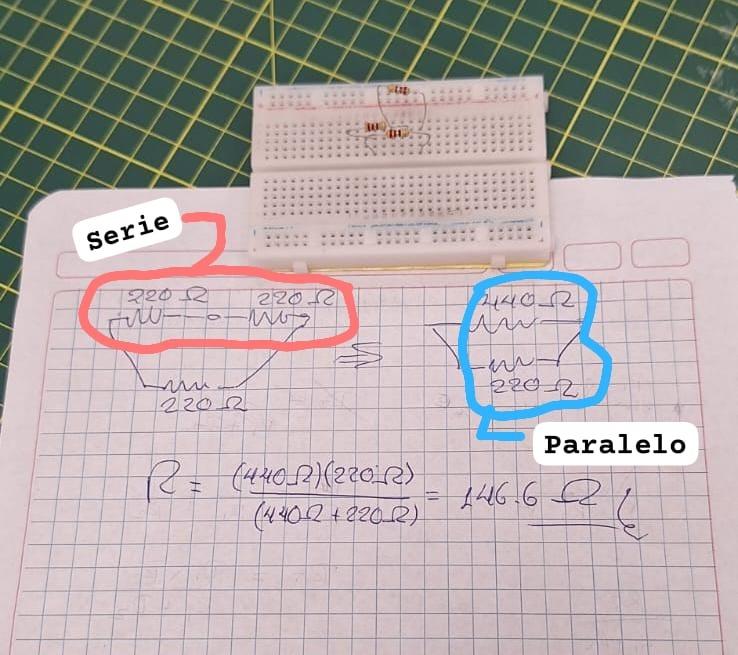 Serie
220 Ω 220 Ω
220 Ω
440 Ω
220 Ω
Paralelo
R = (440Ω)(220Ω) = 146.6 Ω
(440Ω + 220Ω)